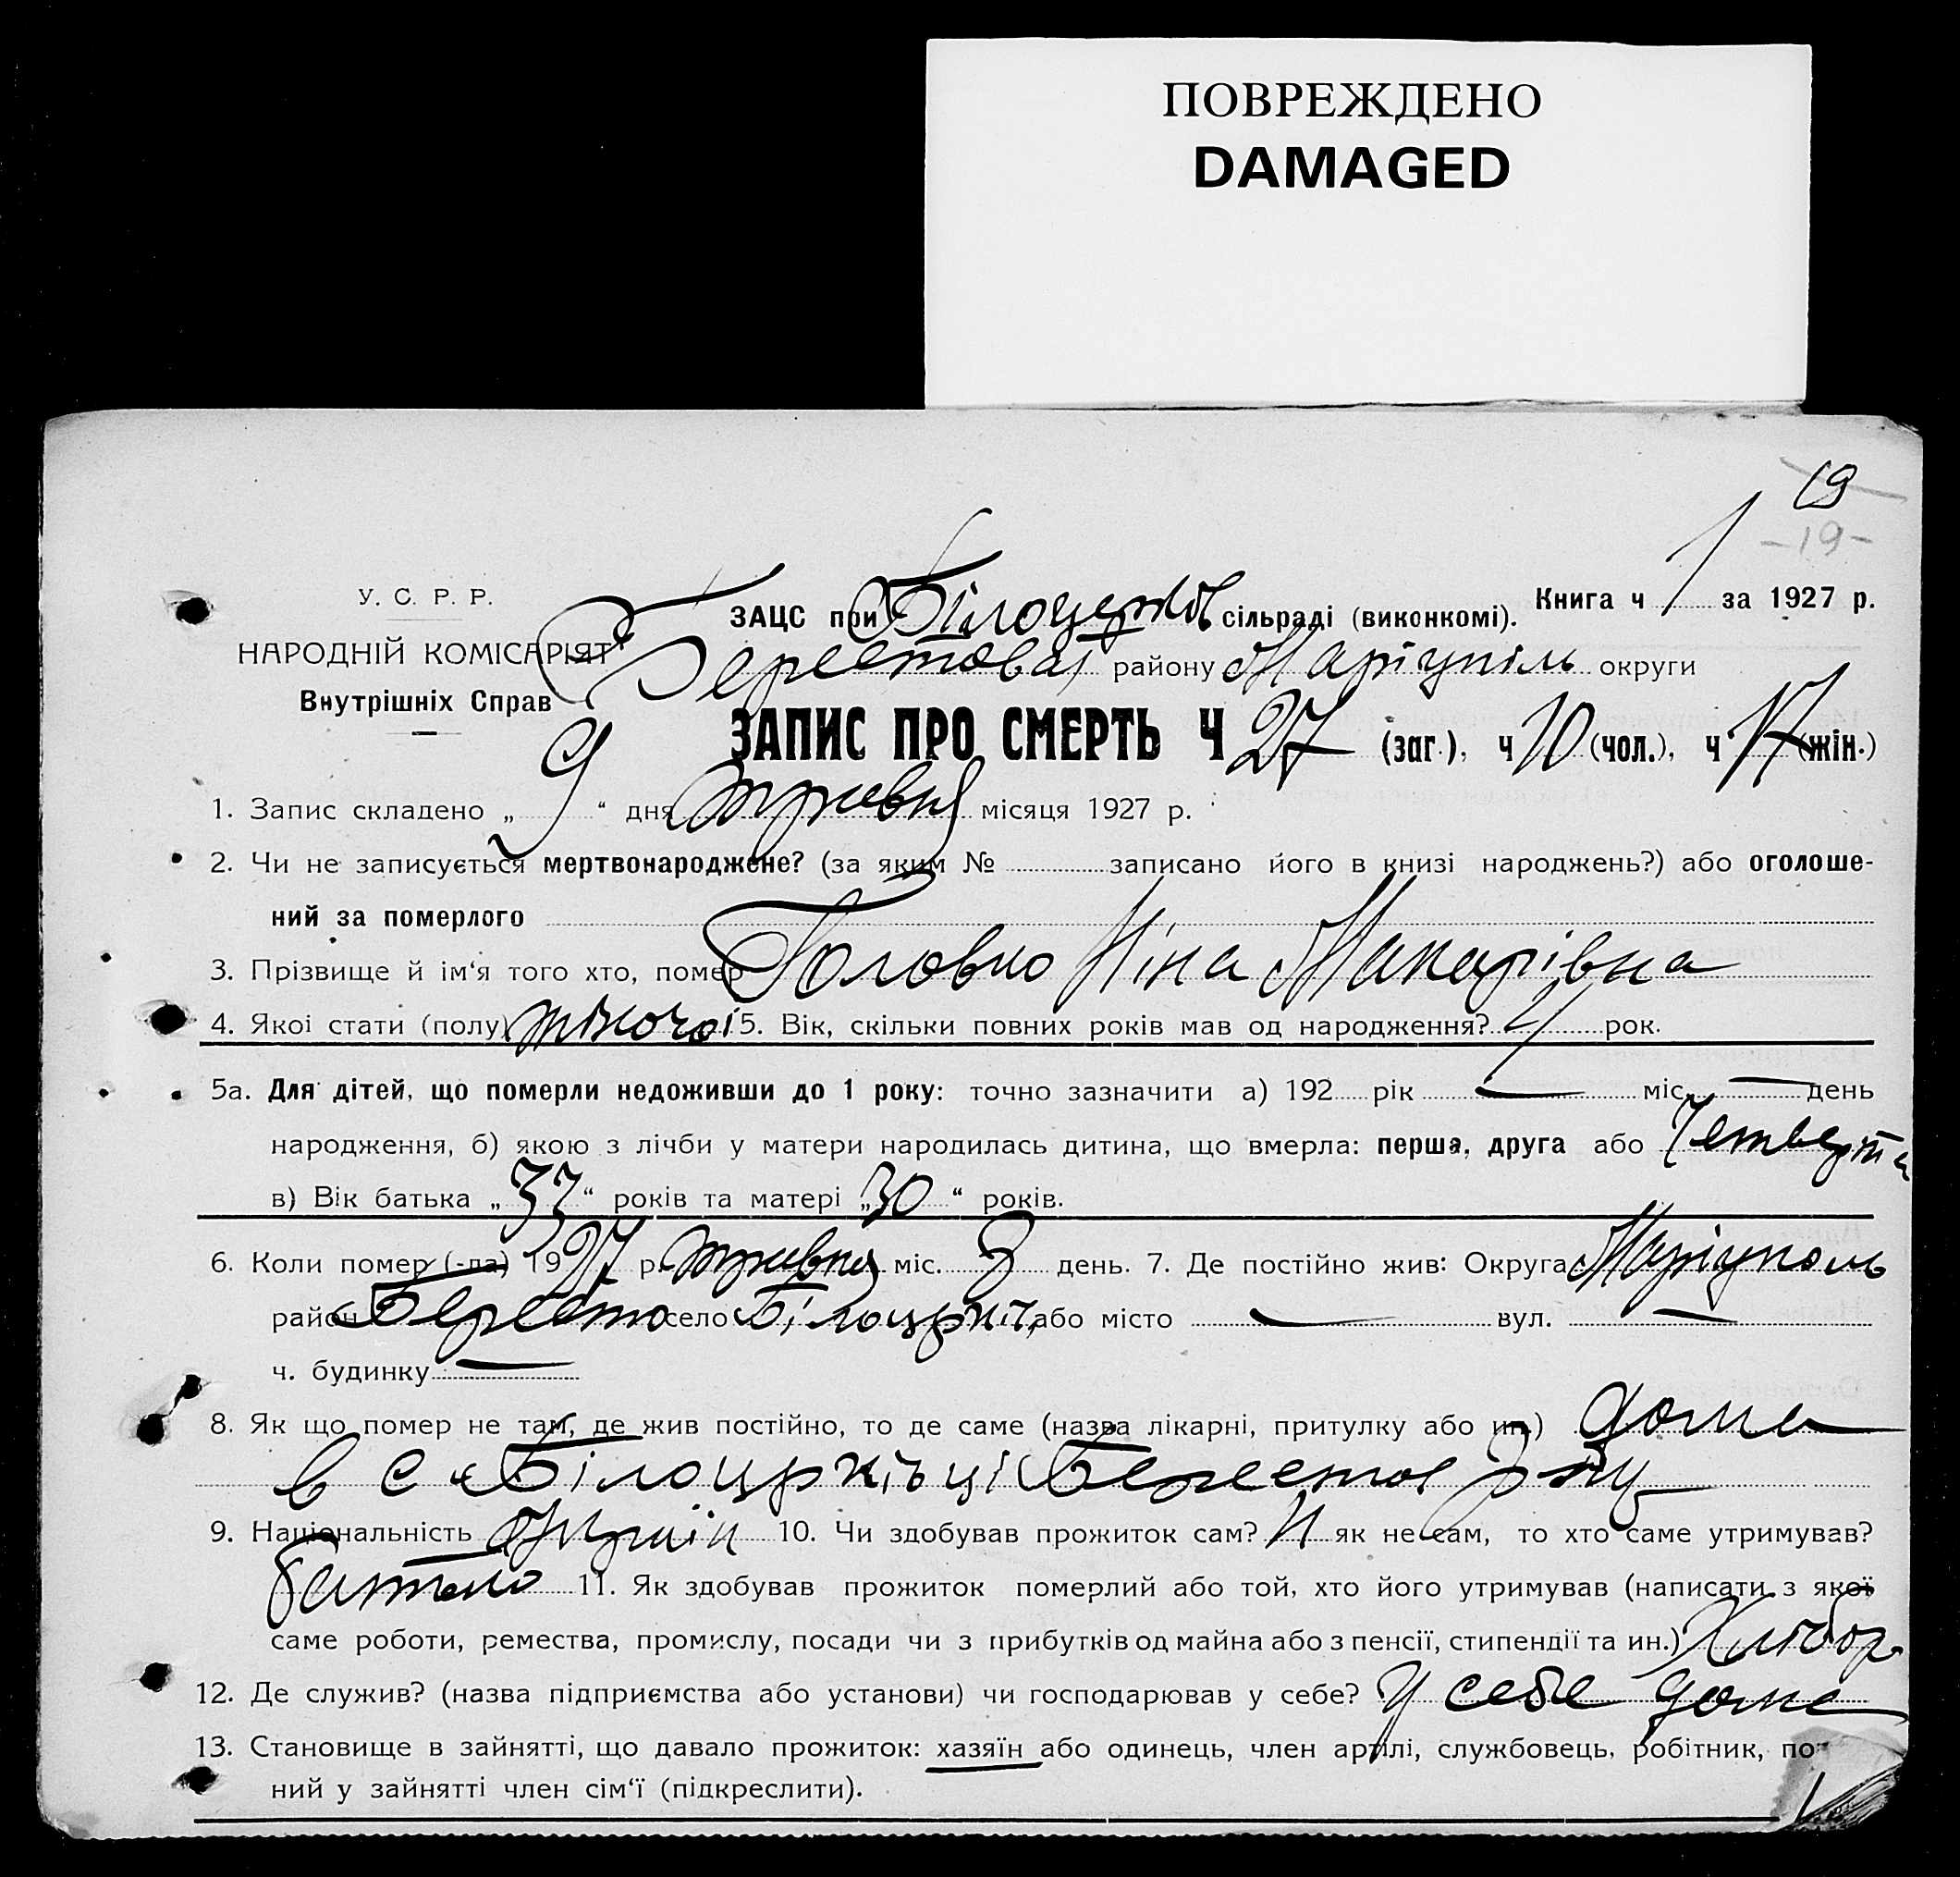 ПОВРЕЖДЕНО
DAMAGED
19
-19-
У. С. Р. Р.
НАРОДНІЙ КОМІСАРІЯТ
Внутрішніх Справ
ЗАЦС при Білоцерків сільраді (виконкомі). Книга ч 1 за 1927 р.
Берестовах району Маріупіль округи
ЗАПИС ПРО СМЕРТЬ Ч 27 (заг.), ч 10 (чол.), ч 17 (жін.)
1. Запис складено „ 9 “ дня травня місяця 1927 р.
2. Чи не записується мертвонароджене? (за яким № записано його в книзі народжень?) або оголоше-
ний за померлого
3. Прізвище й ім‘я того хто, помер Головко Ніна Макарівна
4. Якоі стати (полу) жіночоі 5. Вік, скільки повних років мав од народження? рок.
5а. Для дітей, що померли недоживши до 1 року: точно зазначити а) 192 рік — міс. — день
народження, б) якою з лічби у матери народилась дитина, що вмерла: перша, друга або Четверта
в) Вік батька „ 33 “ років та матері „ 30 “ років.
6. Коли помер (-ла) 1927 р. травня міс. 8 день. 7. Де постійно жив: Округа Маріуполь
район Бересто село Білоцркіч або місто — вул. —
ч. будинку —
8. Як що помер не там, де жив постійно, то де саме (назва лікарні, притулку або ин.) дома
в с Білоцрківці Берестов
9. Національність Украін 10. Чи здобував прожиток сам? Н як не сам, то хто саме утримував?
батько 11. Як здобував прожиток померлий або той, хто його утримував (написати з якої
саме роботи, ремества, промислу, посади чи з прибутків од майна або з пенсії, стипендії та ин.) Хлібор
12. Де служив? (назва підприємства або установи) чи господарював у себе? У себе дома
13. Становище в зайнятті, що давало прожиток: хазяїн або одинець, член артілі, службовець, робітник, по
ний у зайнятті член сім‘ї (підкреслити).